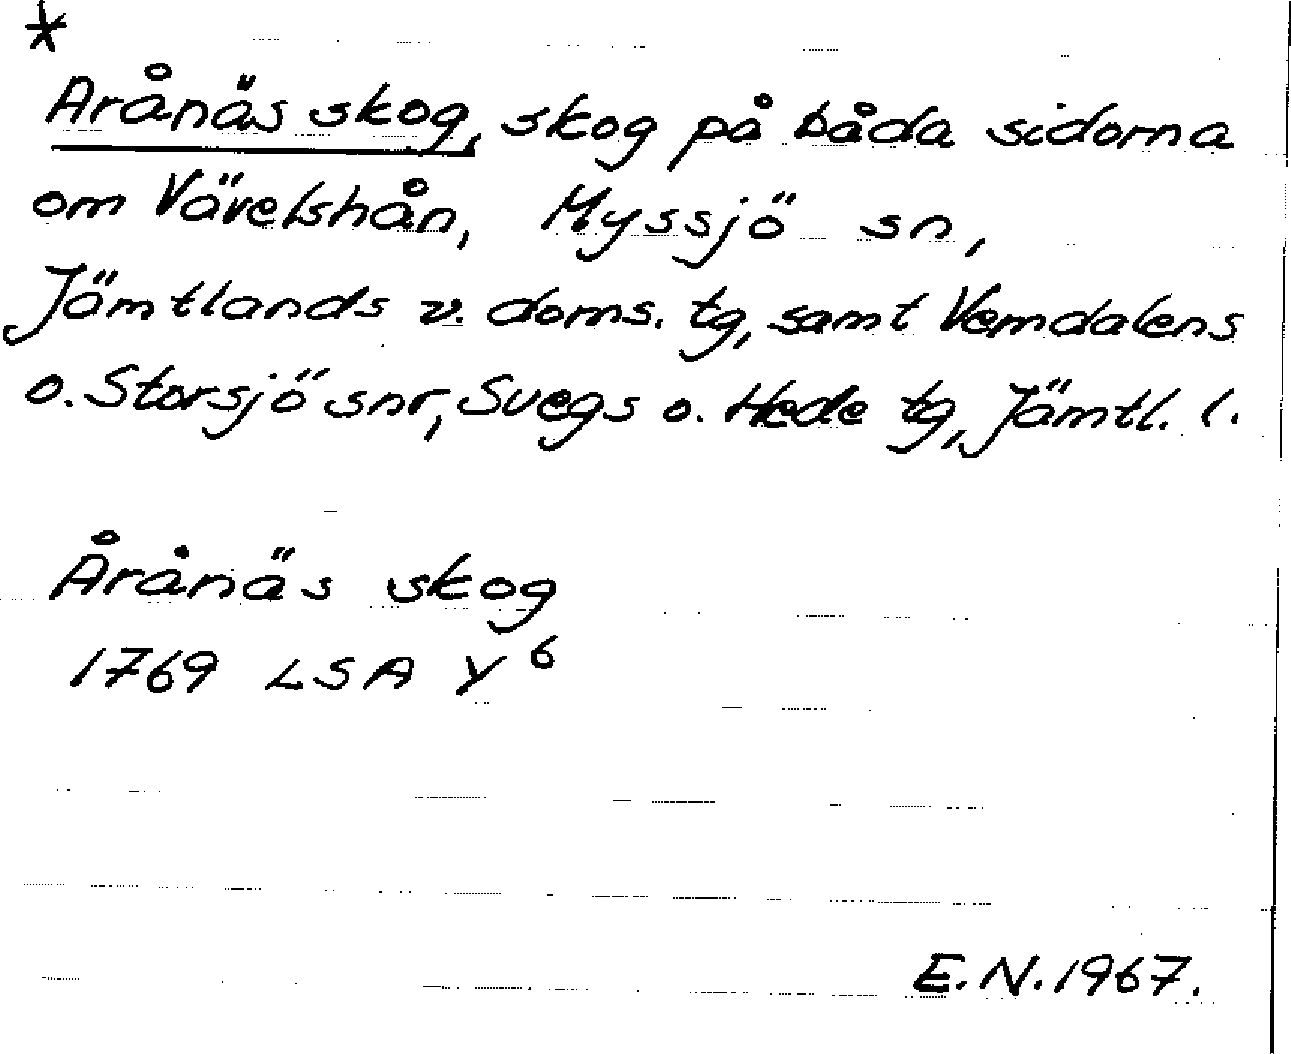 *
Arånäs skog, skog på båda sidorna
om Vävelshån, Myssjö sn,
Jämtlands v. doms. tg, samt Vemdalens
o. Storsjö snr, Svegs o. Hede tg, Jämtl. l.
Årånäs skog
1769 LSA Y⁶
E.N. 1967.